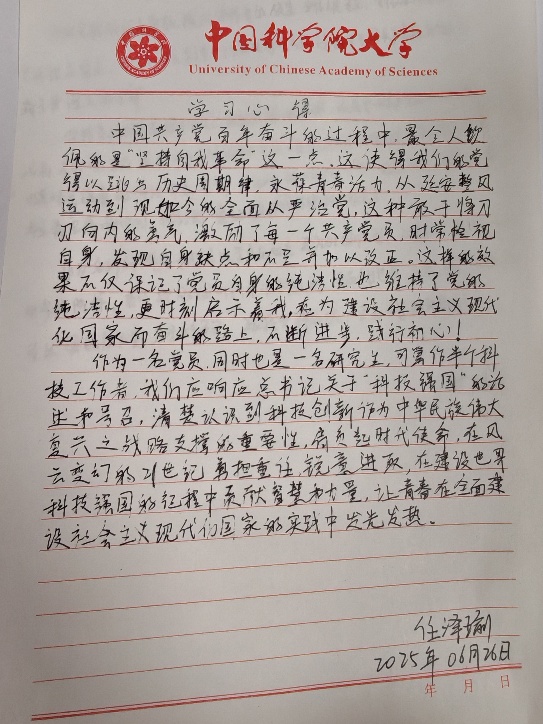 中国科学院大学
University of Chinese Academy of Sciences
学习心得
中国共产党百年奋斗的过程中，最令人钦
佩的是“坚持自我革命”这一点，这使得我们的党
得以跳出历史周期律，永葆青春活力，从延安整风
运动到现如今的全面从严治党，这种敢于将刀
刃向内的勇气，激励了每一个共产党员，时常检视
自身，发现自身缺点和不足并加以改正。这样的效
果不仅保证了党员自身的纯洁性也维持了党的
纯洁性，更时刻启示着我，在为建设社会主义现代
化国家而奋斗的路上，不断进步，践行初心！
作为一名党员，同时也是一名研究生，可算作半个科
技工作者，我们应响应总书记关于“科技强国”的论
述和号召，清楚认识到科技创新作为中华民族伟大
复兴之战略支撑的重要性，肩负起时代使命，在风
云变幻的21世纪勇担重任，锐意进取，在建设世界
科技强国的征程中贡献智慧和力量，让青春在全面建
设社会主义现代化国家的实践中发光发热。
任泽瑜
2025年06月26日
年 月 日